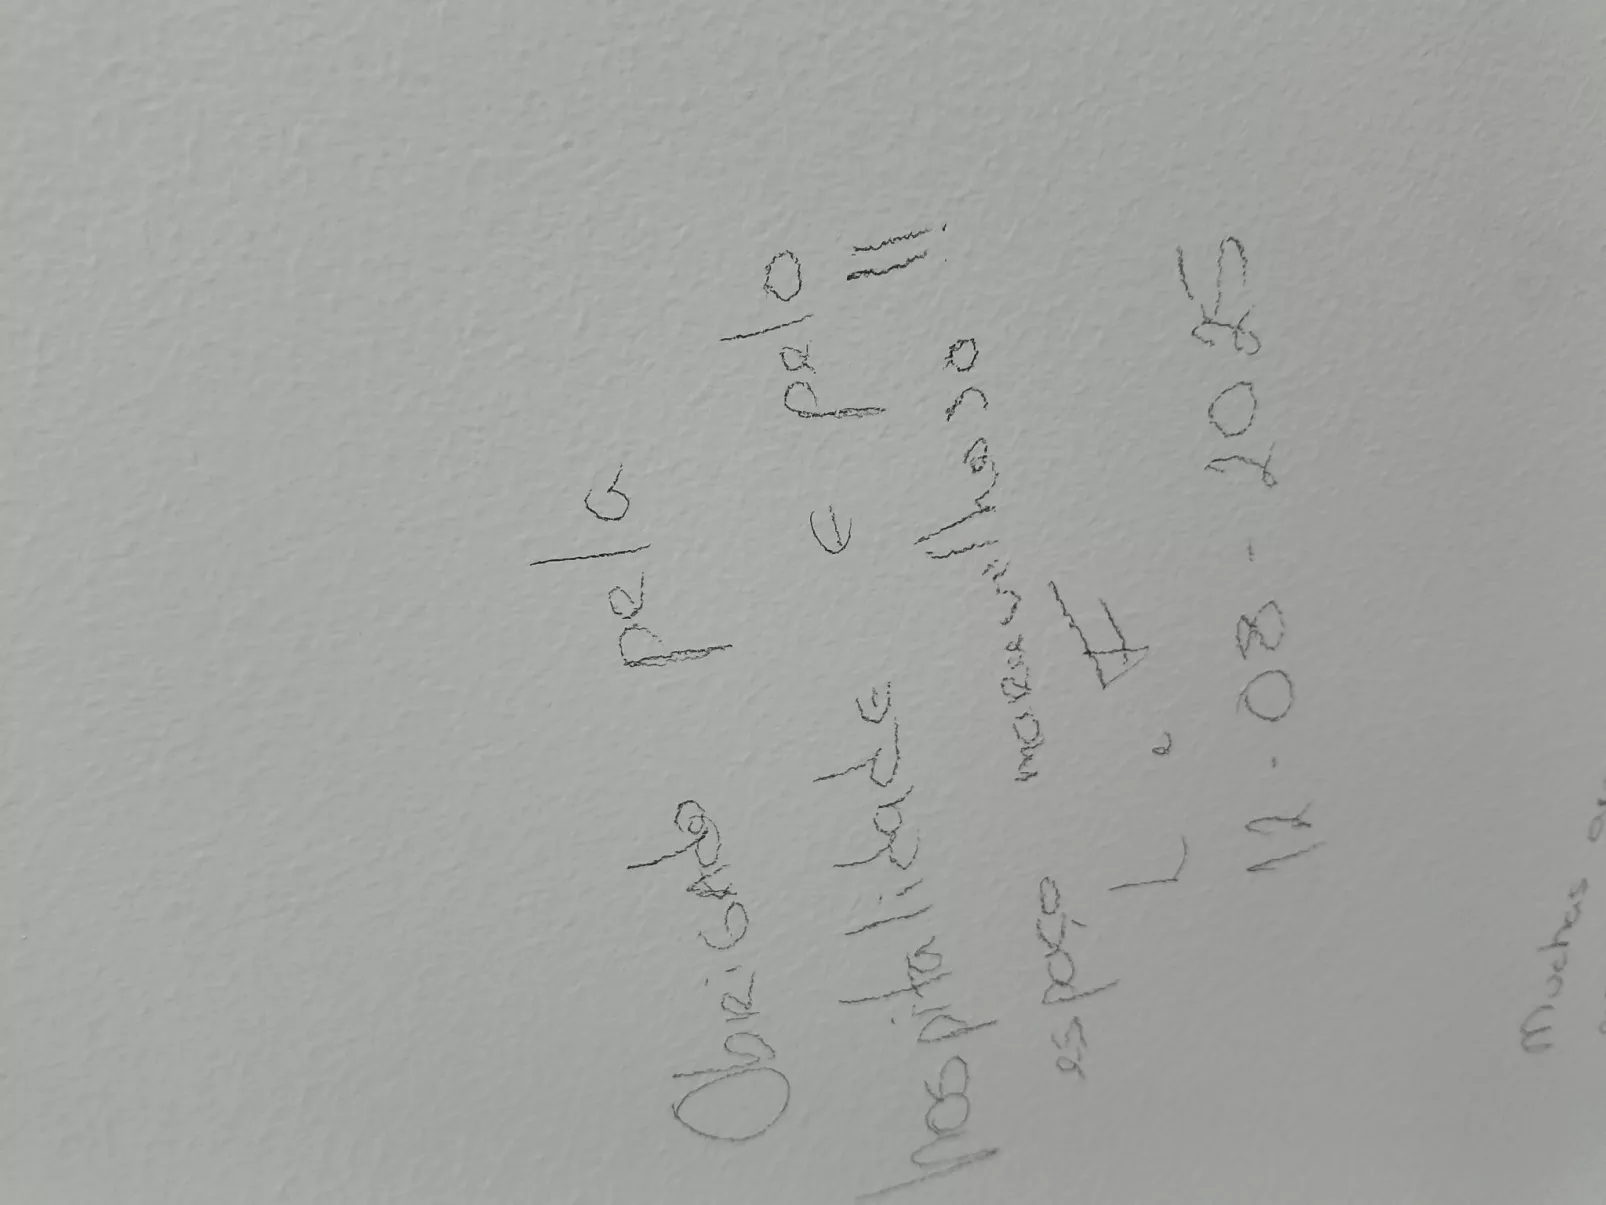 Obrigado pela
hospitalidade e pelo
espaço maravilhoso!!
L. e A
12.08-2025
Muchas